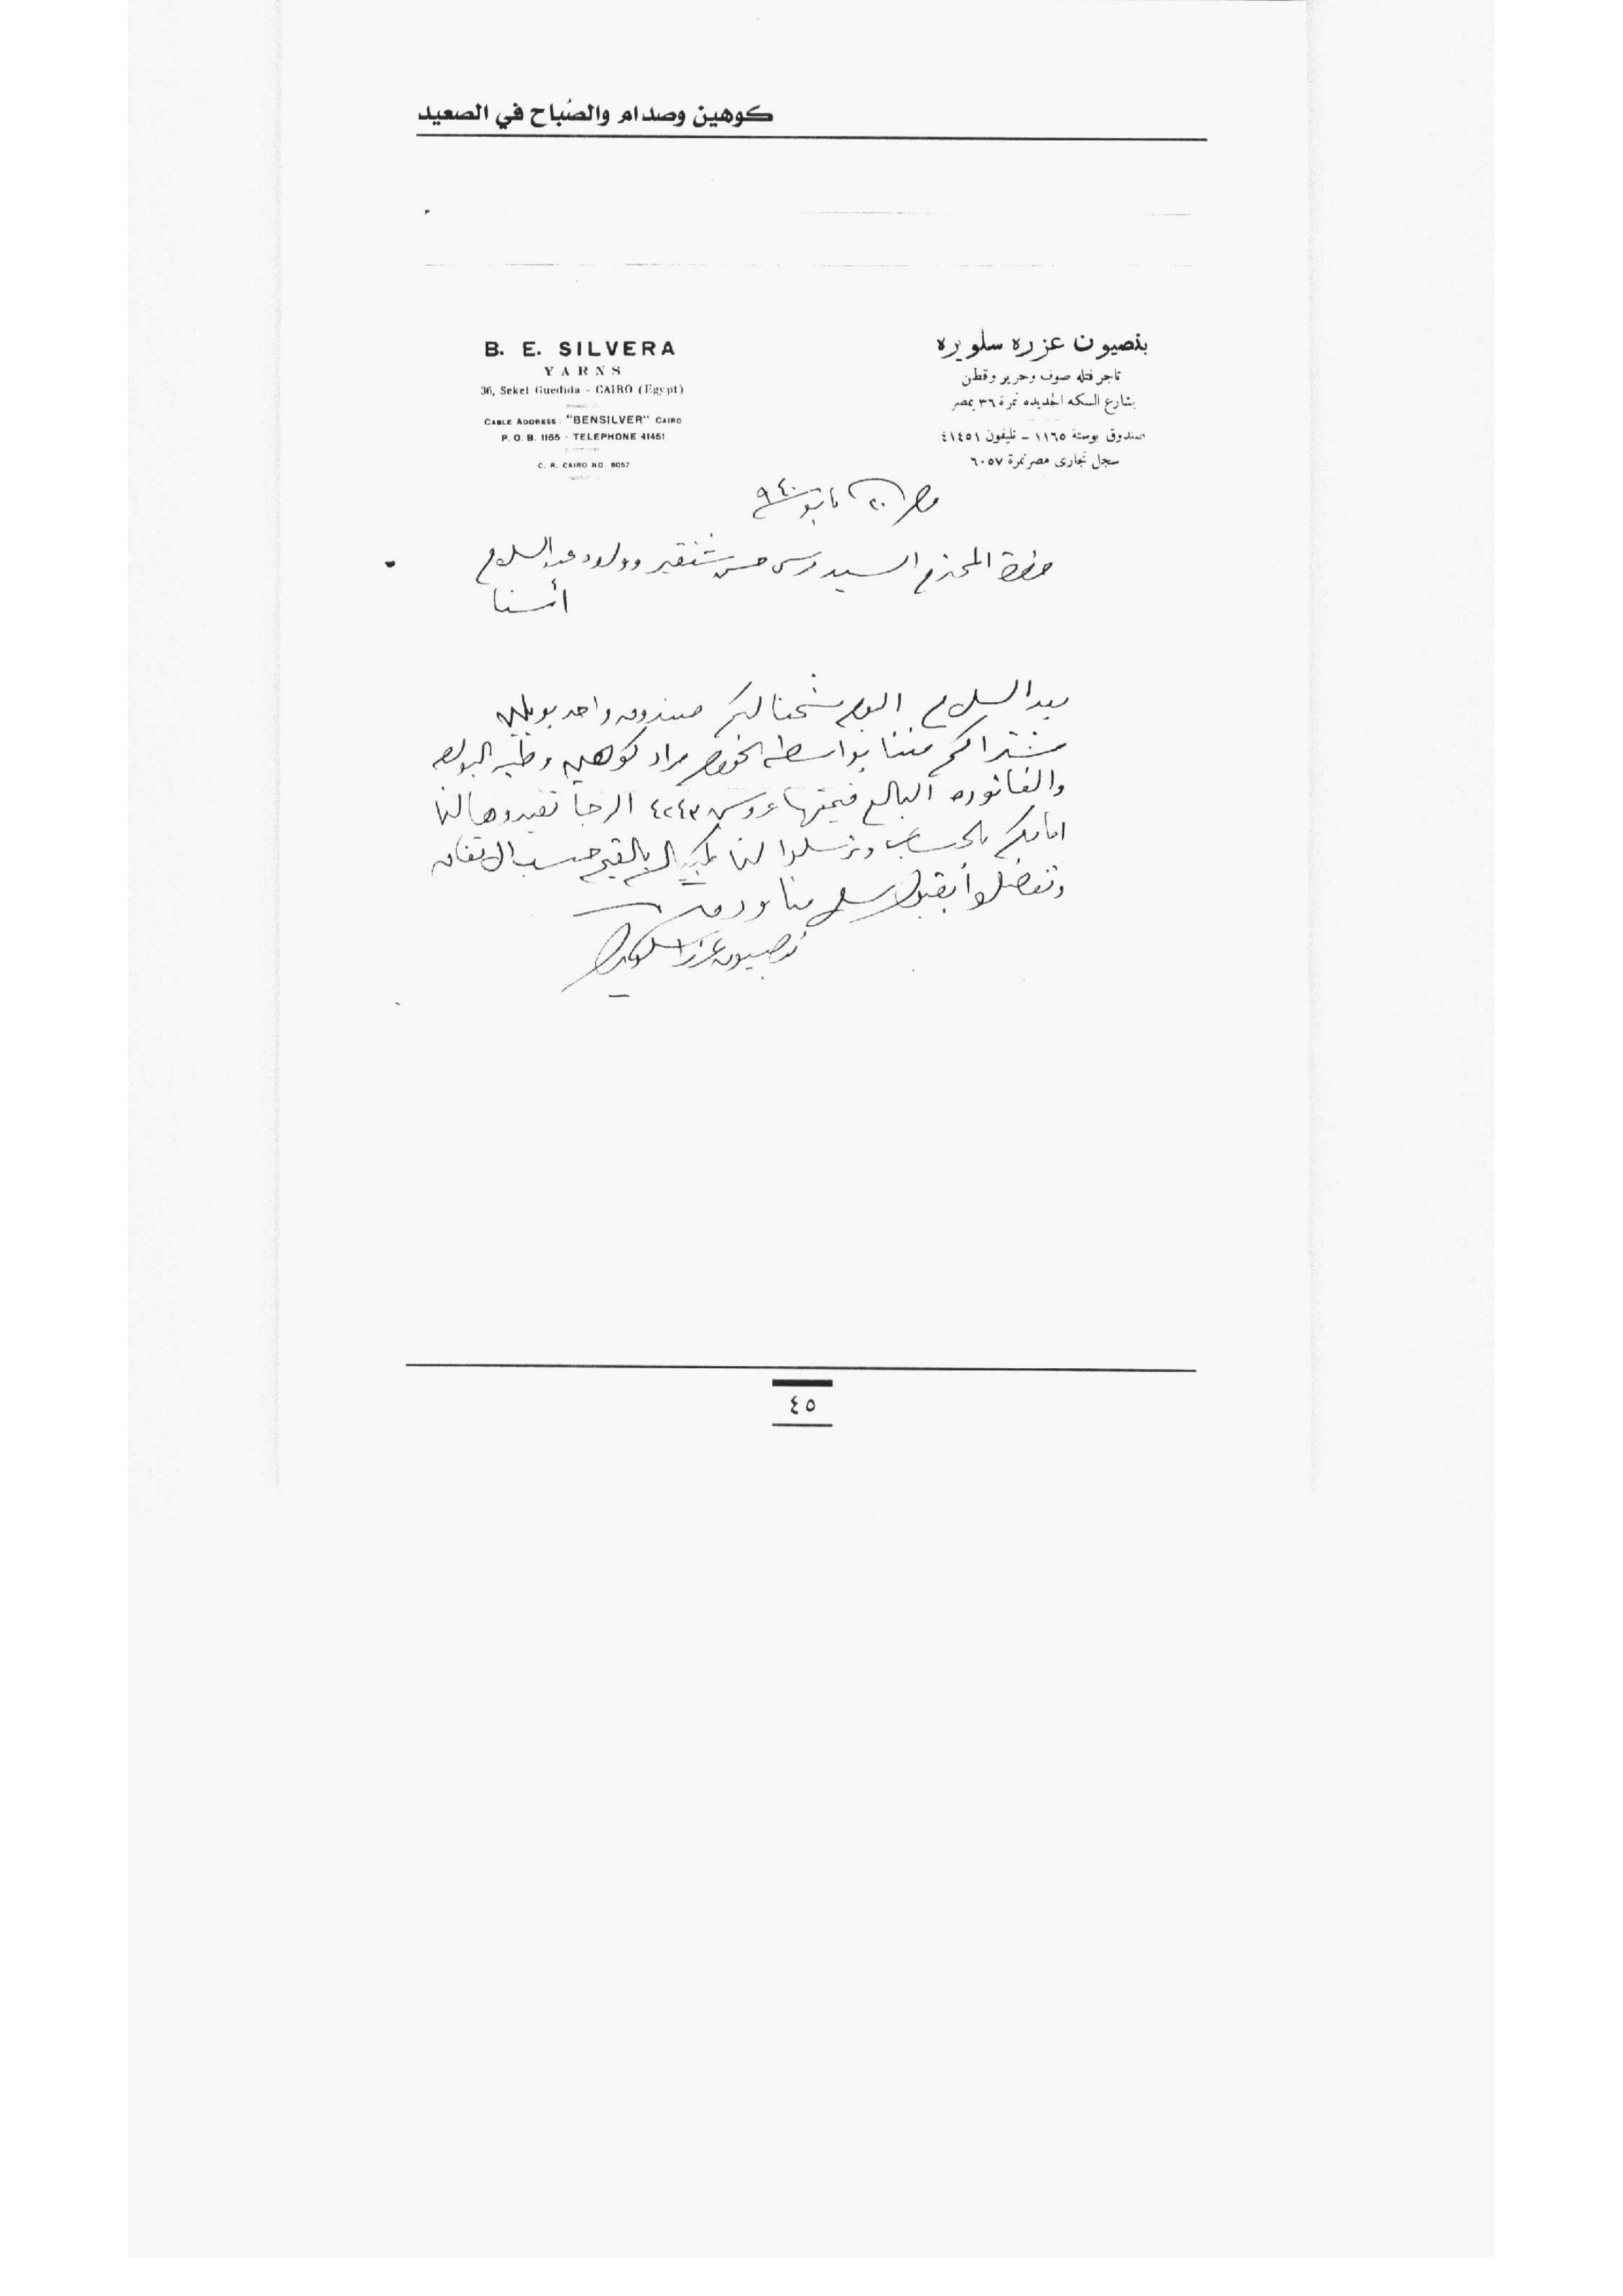 كوهين وصدام والصُباح في الصعيد
B. E. SILVERA
YARNS
36, Seket Guedida - CAIRO (Egypt)
CABLE ADDRESS : "BENSILVER" CAIRO
P. O. B. 1165 - TELEPHONE 41451
C. R. CAIRO NO. 6057
بنصيون عزره سلويره
تاجر فتله صوف وحرير وقطن
بشارع السكه الجديده نمرة ٣٦ بمصر
صندوق بوستة ١١٦٥ - تليفون ٤١٤٥١
سجل تجارى مصر نمرة ٦٠٥٧
مصر ٢٠ مايو ٩٤٠
حضرة المحترم السيد مرسى حسن شنقير وولده عبد السلام
أسنا
بعد السلام اليوم شحنا لكم صندوق واحد
مشتراكم مننا بواسطة الخواجه مراد كوهين وطيه البولصه
والفاتوره البالغ قيمتها قروش ٤٢٤٣ الرجا تقيدوها لنا
امامكم بالحساب وترسلوا لنا كمبيالة بالقيمه حسب الاتفاق
وتفضلوا بقبول سلامنا
بنصيون عزرا سلويره
٤٥